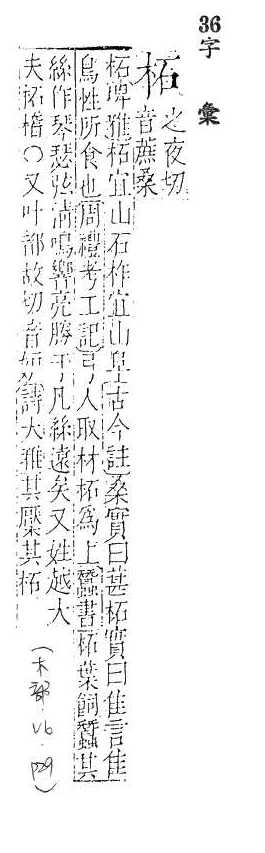 36字彙
柘
之夜切
音蔗桑
柘埤雅柘宜山石柞宜山阜古今註桑實曰葚柘實曰隹言隹
鳥性所食也周禮考工記弓人取材柘爲上蠶書柘葉飼蠶其
絲作琴瑟弦清鳴響亮勝于凡絲遠矣又姓越大
夫柘稽○又叶都故切音妬詩大雅其檿其柘
(木部·V6·